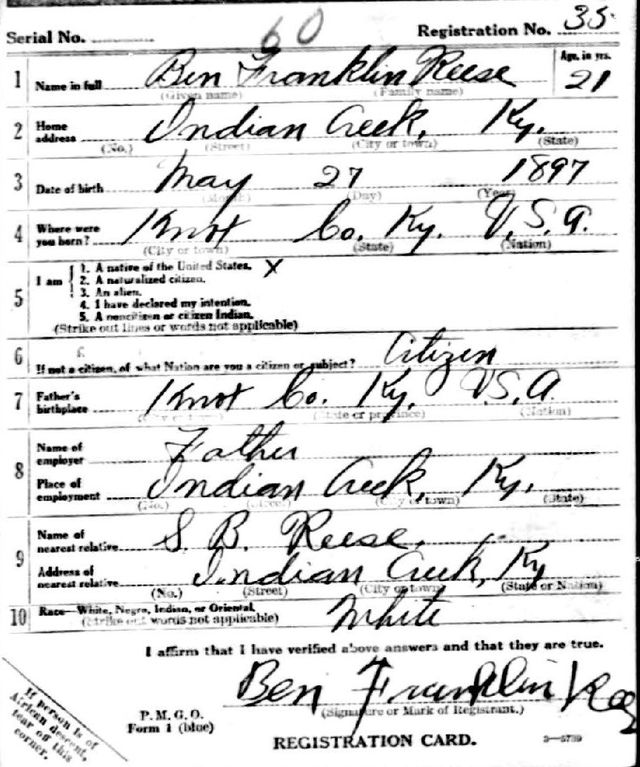 Serial No. 60 Registration No. 35
1 Name in full Ben Franklin Reese Age, in yrs. 21
(Given name) (Family name)
2 Home address Indian Creek, Ky.
(No.) (Street) (City or town) (State)
3 Date of birth May 27 1897
(Month) (Day) (Year)
4 Where were you born? Knot Co. Ky. U.S.A.
(City or town) (State) (Nation)
5 I am
1. A native of the United States. X
2. A naturalized citizen.
3. An alien.
4. I have declared my intention.
5. A noncitizen or citizen Indian.
(Strike out lines or words not applicable)
6 If not a citizen, of what Nation are you a citizen or subject? Citizen
7 Father's birthplace Knot Co. Ky. U.S.A.
(City or town) (State or province) (Nation)
8 Name of employer Father
Place of employment Indian Creek, Ky.
(No.) (Street) (City or town) (State)
9 Name of nearest relative S. B. Reese.
Address of nearest relative Indian Creek, Ky
(No.) (Street) (City or town) (State or Nation)
10 Race—White, Negro, Indian, or Oriental. White
(Strike out words not applicable)
I affirm that I have verified above answers and that they are true.
Ben Franklin
(Signature or Mark of Registrant.)
P. M. G. O.
Form 1 (blue)
REGISTRATION CARD.
3—5739
If person is of
African descent,
tear off this
corner.